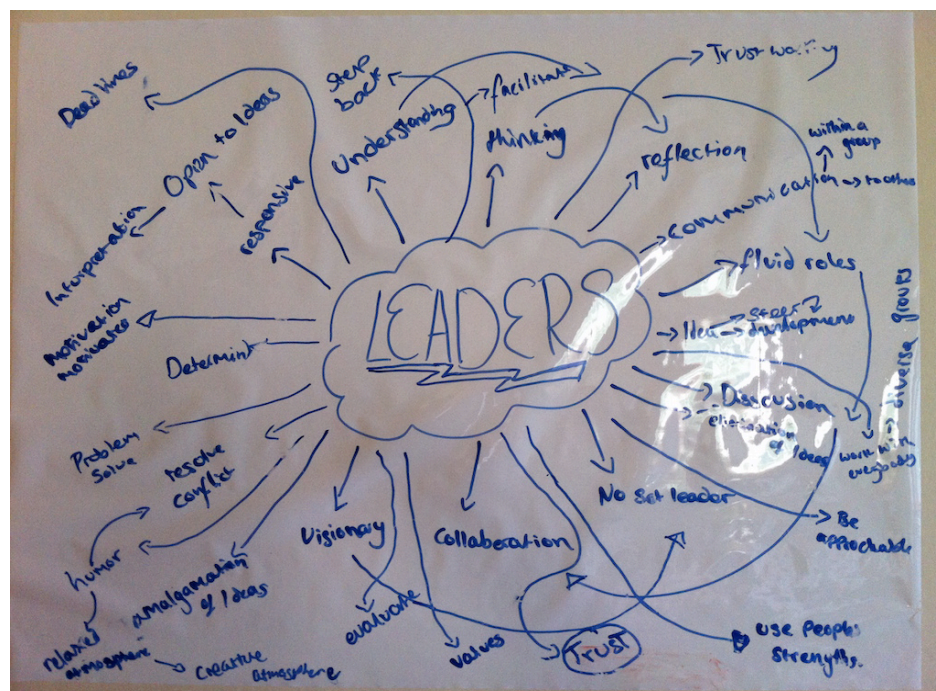 LEADERS
Deadlines
Open to Ideas
Inturpretation
responsive
step
back
Understanding
facilitate
thinking
Trust worthy
reflection
within a
group
Communication → to others
fluid roles
Idea → steer
→ development
Discussion
elimination
of Ideas
diverse groups
work with
everybody
No set leader
Be
approchable
use People
Strengths.
Trust
Collaboration
values
evaluate
Visionary
amalgamation
of Ideas
resolve
conflict
humor
relaxed
atmosphere
creative
atmosphere
Problem
Solve
Determint
motivation
motivates